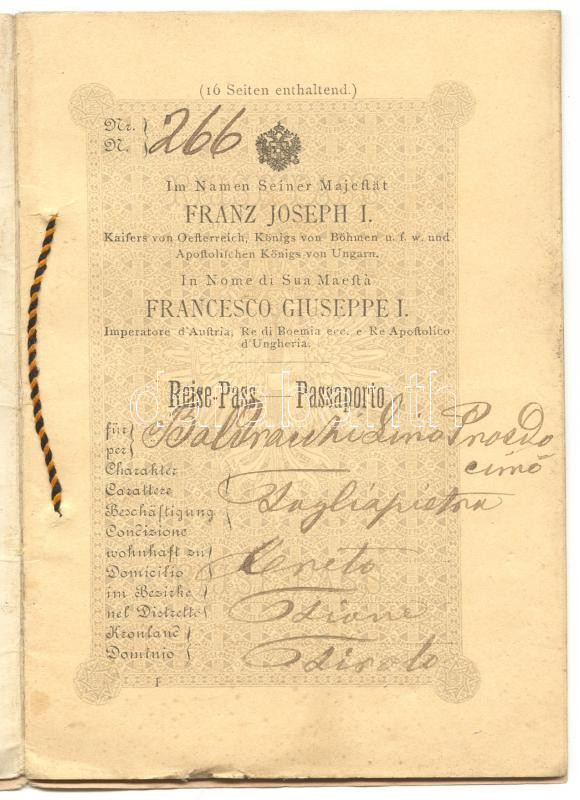 (16 Seiten enthaltend.)
Nr.
N.
266
Im Namen Seiner Majeſtät
FRANZ JOSEPH I.
Kaiſers von Oeſterreich, Königs von Böhmen u. ſ. w. und
Apoſtoliſchen Königs von Ungarn.
In Nome di Sua Maeſtà
FRANCESCO GIUSEPPE I.
Imperatore d'Auſtria, Re di Boemia ecc. e Re Apoſtolico
d'Ungheria.
Reise-Pass — Passaporto
für
per
Baldracchi Lino Prosdo
cimo
Charakter
Carattere
Beschäftigung
Condizione
Tagliapietra
wohnhaft zu
Domicilio
Creto
im Bezirke
nel Distretto
Tione
Kronland
Dominio
Tirolo
1